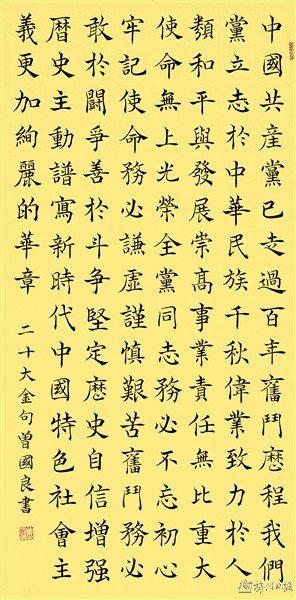 中國共産黨已走過百年奮鬥歷程我們
黨立志於中華民族千秋偉業致力於人
類和平與發展崇高事業責任無比重大
使命無上光榮全黨同志務必不忘初心
牢記使命務必謙虛謹慎艱苦奮鬥務必
敢於鬪爭善於斗爭堅定歷史自信增强
曆史主動譜寫新時代中國特色社會主
義更加絢麗的華章 二十大金句曾國良書
梅州日报